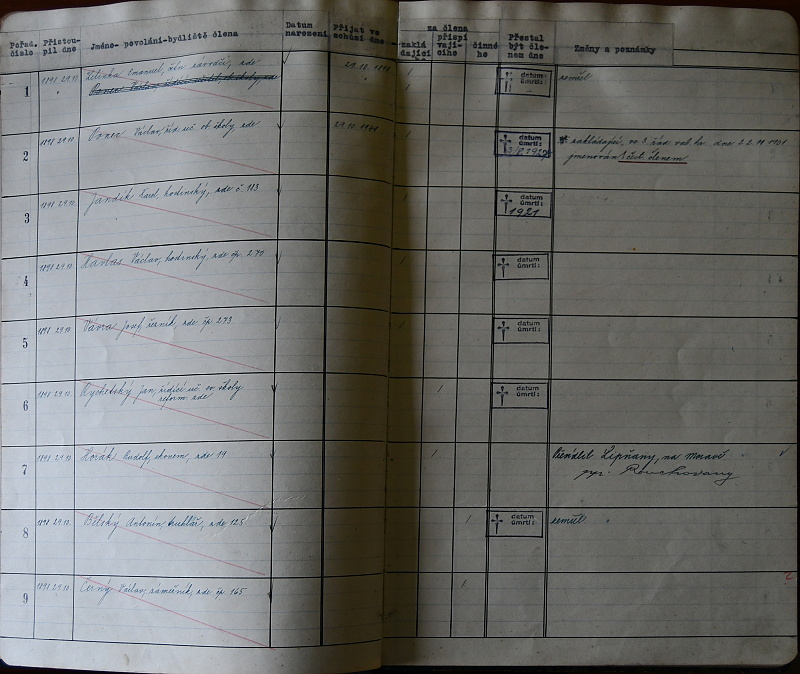 Pořad. číslo
Přistou- pil dne
Jméno- povolání-bydliště člena
Datum narození
Přijat ve schůzi dne
za člena
zaklá dající
přispí vají- cího
činné ho
Přestal být čle- nem dne
Změny a poznámky
1 1898 29.12. Emanuel, zde 29.12. 1898 datum úmrtí: zemřel
2 1898 29.12. Ponec Václav, říd. uč. ob. školy zde datum úmrtí:
zakládající, ve 3. řád. val. hr. dne 22.11.1931
jmenován čest. členem
3 1898 29.12. Jandík Karel, hodinský, zde č. 113 datum úmrtí: 1921
4 1898 29.12. Václav, zde čp. 270 datum úmrtí:
5 1898 29.12. Vávra Josef, řezník, zde čp. 273 datum úmrtí:
6 1898 29.12. Rychetský Jan, řídící uč. ev. školy
reform. zde datum úmrtí:
7 1898 29.12. Horák Rudolf, ekonom, zde 19 Lipňany, na Moravě
Rouchovany
8 1898 29.12. Bělský Antonín truhlář, zde 125 datum úmrtí: zemřel
9 1898 29.12. Černý Václav, zámečník, zde čp. 165